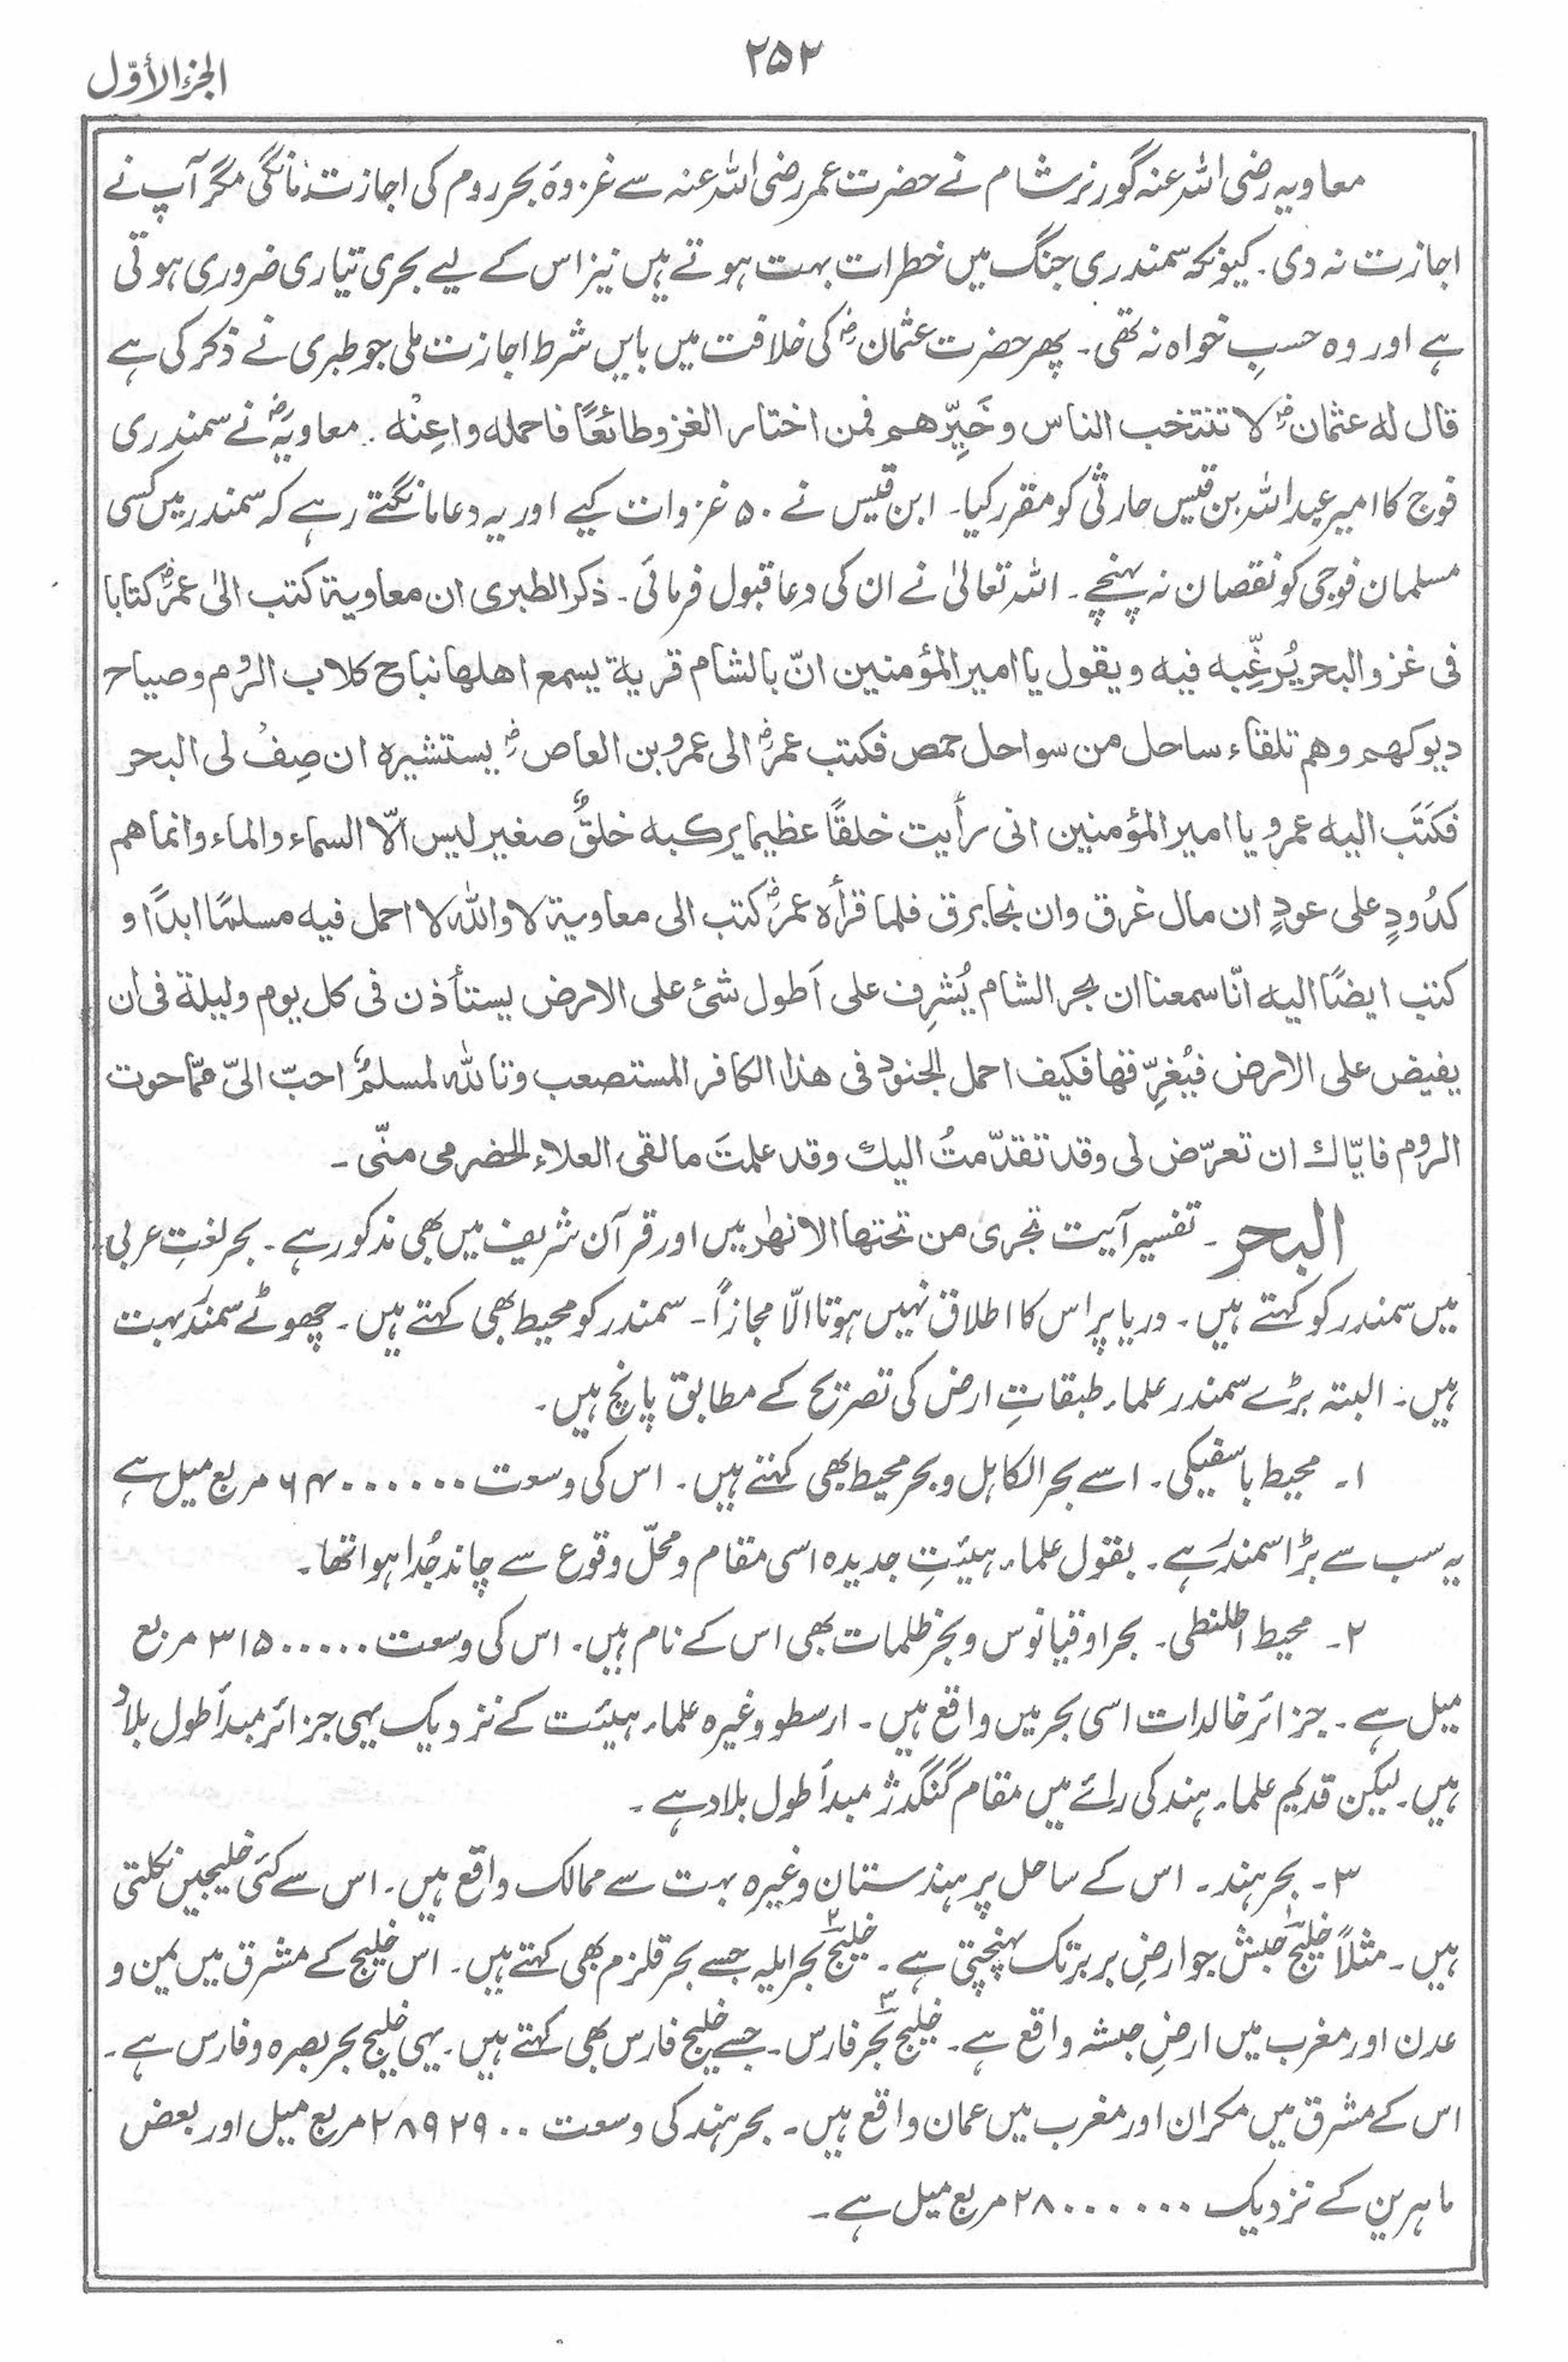 ۲۵۲
الجزء الأوّل
معاویہ رضی اللہ عنہ گورنر شام نے حضرت عمر رضی اللہ عنہ سے غزوۂ بحر روم کی اجازت مانگی مگر آپ نے
اجازت نہ دی۔ کیونکہ سمندری جنگ میں خطرات بہت ہوتے ہیں نیز اس کے لیے بحری تیاری ضروری ہوتی
ہے اور وہ حسبِ خواہ نہ تھی۔ پھر حضرت عثمانؓ کی خلافت میں بایں شرط اجازت ملی جو طبری نے ذکر کی ہے
قال له عثمانؓ لا تنتخب الناس وخَيِّرهم فمن اختار الغزو طائعًا فاحمله واعِنْه۔ معاویہؓ نے سمندری
فوج کا امیر عبداللہ بن قیس حارثی کو مقرر کیا۔ ابن قیس نے ۵۰ غزوات کیے اور یہ دعا مانگتے رہے کہ سمندر میں کسی
مسلمان فوجی کو نقصان نہ پہنچے۔ اللہ تعالیٰ نے ان کی دعا قبول فرمائی۔ ذکر الطبری ان معاویة کتب الیٰ عمرؓ کتابا
فی غزو البحر یُرغِّبه فیه ویقول یا امیر المؤمنین انّ بالشام قریة یسمع اهلها نباح کلاب الرُوم وصیاح
دیوکهم وهم تلقاء ساحل من سواحل حمص فکتب عمرؓ الی عمرو بن العاصؓ یستشیره ان صِفْ لی البحر
فکَتَب الیه عمرو یا امیر المؤمنین انی رأیت خلقًا عظیما یرکبه خلقٌ صغیر لیس الّا السماء والماء وانما هم
کدُودٍ علی عودٍ ان مال غرق وان نجا برق فلما قرأه عمرؓ کتب الی معاویة لا والله لا احمل فیه مسلمًا ابدًا و
کتب ایضًا الیه انّا سمعنا ان بحر الشام یُشرِف علی اَطول شئ علی الارض یستأذن فی کل یوم ولیلة فی ان
یفیض علی الارض فیُغرِّقها فکیف احمل الجنود فی هذا الکافر المستصعب وتالله لمسلمٌ احبّ الیّ ممّا حوت
الروم فایّاك ان تعرّض لی وقد تقدّمتُ الیك وقد علمتَ ما لقی العلاء الحضرمی منّی۔
البحر۔ تفسیر آیت تجری من تحتها الانهٰر میں اور قرآن شریف میں بھی مذکور ہے۔ بحر لغتِ عربی
میں سمندر کو کہتے ہیں۔ دریا پر اس کا اطلاق نہیں ہوتا الّا مجازاً۔ سمندر کو محیط بھی کہتے ہیں۔ چھوٹے سمندر بہت
ہیں۔ البتہ بڑے سمندر علماء طبقاتِ ارض کی تصریح کے مطابق پانچ ہیں۔
۱۔ محیط باسفیکی۔ اسے بحر الکاہل و بحر محیط بھی کہتے ہیں۔ اس کی وسعت ۶۴۰۰۰۰۰۰ مربع میل ہے
یہ سب سے بڑا سمندر ہے۔ بقول علماء ہیئتِ جدیدہ اسی مقام و محلّ وقوع سے چاند جُدا ہوا تھا۔
۲۔ محیط اطلنطی۔ بحر اوقیانوس و بحر ظلمات بھی اس کے نام ہیں۔ اس کی وسعت ۳۱۵۰۰۰۰۰ مربع
میل ہے۔ جزائر خالدات اسی بحر میں واقع ہیں۔ ارسطو وغیرہ علماء ہیئت کے نزدیک یہی جزائر مبدأ طول بلاد
ہیں۔ لیکن قدیم علماء ہند کی رائے میں مقام گنگدژ مبدأ طول بلاد ہے۔
۳۔ بحر ہند۔ اس کے ساحل پر ہندستان وغیرہ بہت سے ممالک واقع ہیں۔ اس سے کئی خلیجیں نکلتی
ہیں۔ مثلاً خلیج ۱ حبش جو ارضِ بربر تک پہنچتی ہے۔ خلیج ۲ بحر ایلہ جسے بحر قلزم بھی کہتے ہیں۔ اس خلیج کے مشرق میں یمن و
عدن اور مغرب میں ارضِ حبشہ واقع ہے۔ خلیج ۳ بحر فارس۔ جسے خلیج فارس بھی کہتے ہیں۔ یہی خلیج بحر بصرہ و فارس ہے۔
اس کے مشرق میں مکران اور مغرب میں عمان واقع ہیں۔ بحر ہند کی وسعت ۲۸۹۲۹۰۰ مربع میل اور بعض
ماہرین کے نزدیک ۲۸۰۰۰۰۰۰ مربع میل ہے۔